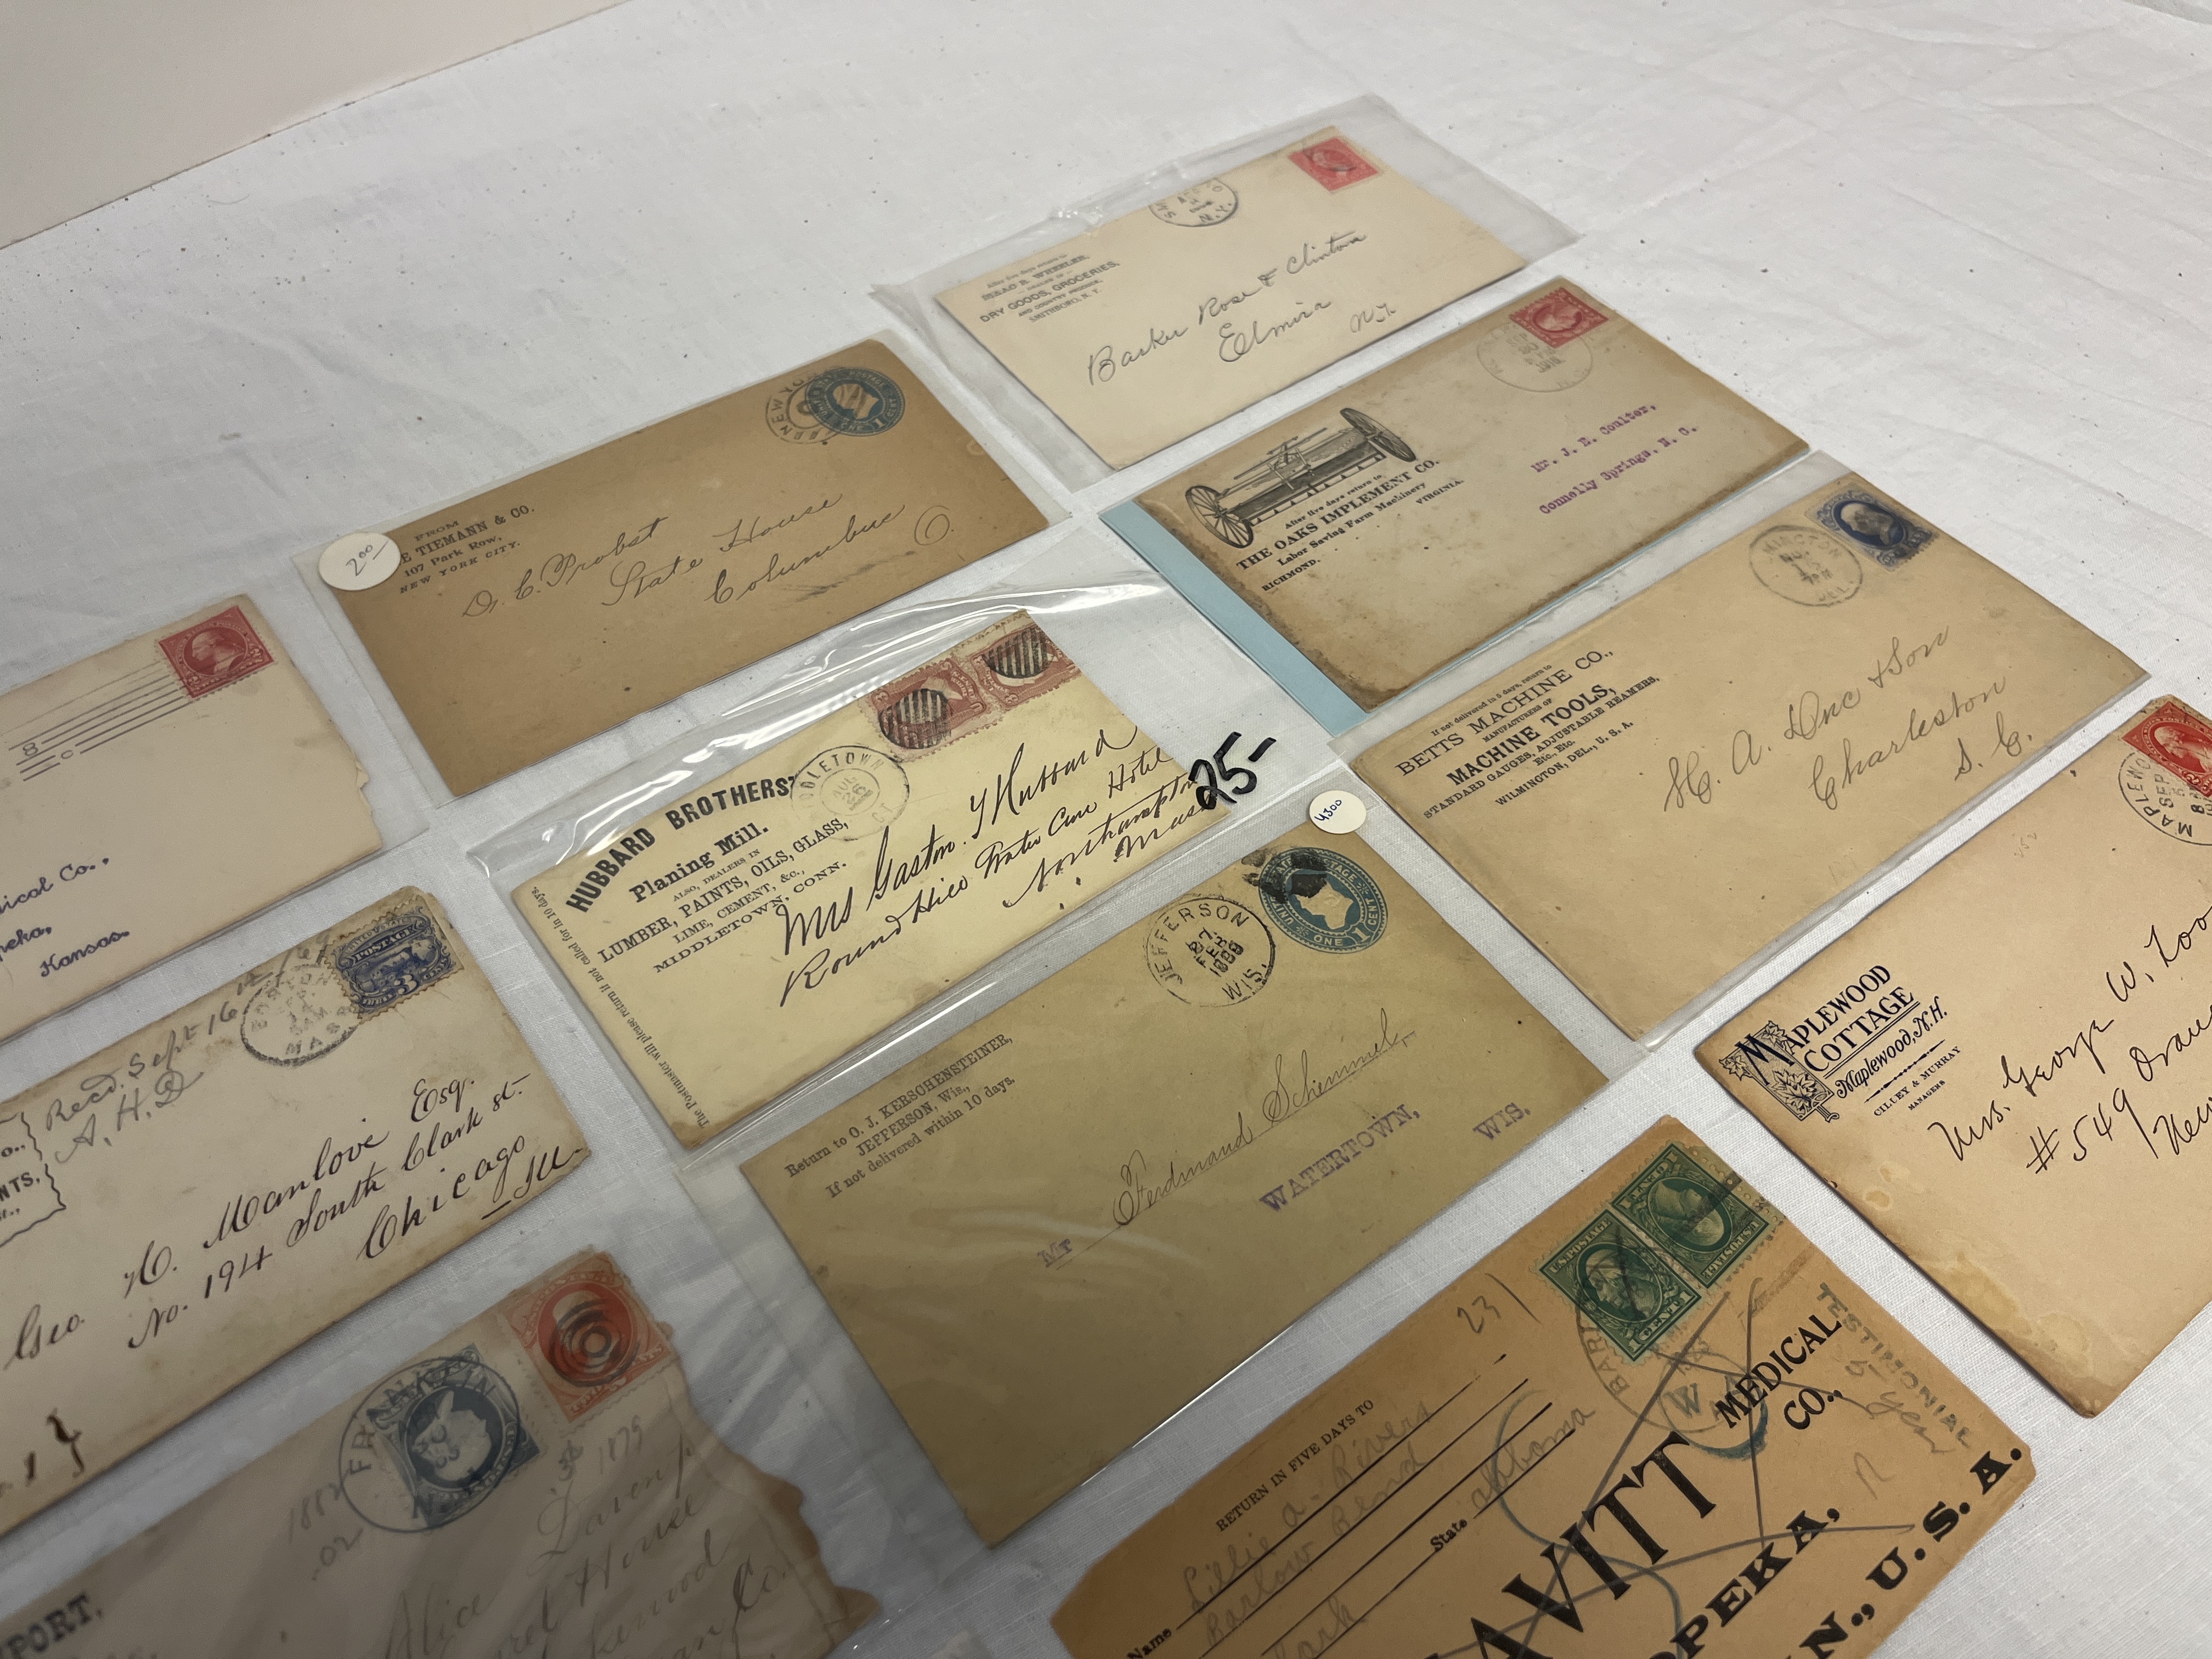 After five days return to
ISAAC S. WHEELER,
DRY GOODS, GROCERIES,
AND COUNTRY PRODUCE,
SMITHBORO, N. Y.
N.Y.
Barker Rose & Clinton
Elmira
N.Y.
After five days return to
THE OAKS IMPLEMENT CO.
Labor Saving Farm Machinery
RICHMOND. VIRGINIA.
Mr. J. E. Coulter,
Connelly Springs, N. C.
NEW YORK
1
2 00
FROM
E TIEMANN & CO.
107 Park Row,
NEW YORK CITY.
D. C. Probst
State House
Columbus O.
If not delivered in 5 days, return to
BETTS MACHINE CO.,
MANUFACTURERS OF
MACHINE TOOLS,
STANDARD GAUGES, ADJUSTABLE REAMERS,
Etc. Etc.
WILMINGTON, DEL., U. S. A.
MINGTON
DEL.
Charleston
S. C.
8
C
ical Co.,
eka,
Kansas.
HUBBARD BROTHERS'
Planing Mill.
ALSO, DEALERS IN
LUMBER, PAINTS, OILS, GLASS,
LIME, CEMENT, &c.,
MIDDLETOWN, CONN.
The Postmaster will please return if not called for in 10 days.
DLETOWN
JUL
26
CT
Mrs Gaston T Hubbard
Round Hill Water Cure Hotel
Northampton
Mass
25-
4,500
JEFFERSON
27
FEB
1888
WIS.
ONE 1 CENT
Return to O. J. KERSCHENSTEINER,
JEFFERSON, Wis.,
If not delivered within 10 days.
Mr Ferdinand Schemmel,
WATERTOWN, WIS.
MAPLEWO
SEP
MAPLEWOOD
COTTAGE
Maplewood, N.H.
CILLEY & MURRAY
MANAGERS
Mrs. George W. Loo
#549
New
Recd. Sept 16
A. H. D
POSTAGE
3
BOSTON
MA
o.,
NTS,
Geo H. Manlove Esq.
No. 194 South Clark St.
Chicago
Ill.
FRANKLIN
1882
1879
Alice Davenp
Co.
PORT,
231
U.S. POSTAGE
1 CENT 1
U.S. POSTAGE
BAR
WA
TESTIMONIAL
RETURN IN FIVE DAYS TO
Name Lillie A. Rivers
Barlow Bend
Clark State Alabama
MEDICAL
CO.,
AVITT
OPEKA,
N., U. S. A.